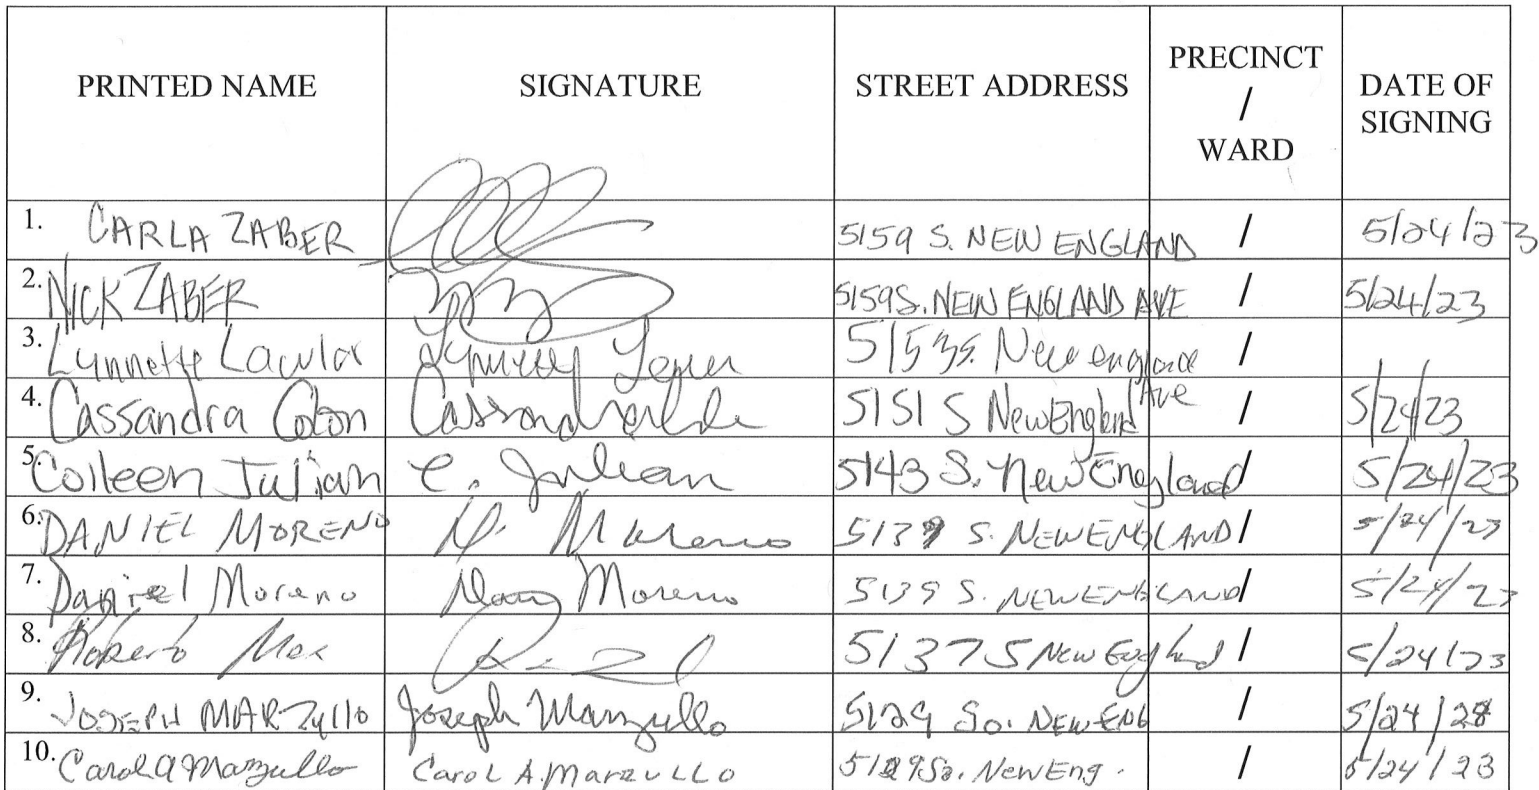 PRINTED NAME SIGNATURE STREET ADDRESS PRECINCT / WARD DATE OF SIGNING
1. CARLA ZABER 5159 S. NEW ENGLAND / 5/24/23
2. NICK ZABER 5159 S. NEW ENGLAND AVE / 5/24/23
3. Lynnette Lawlor 5153 S. New england /
4. Cassandra Colon Cassandra 5151 S New England Ave / 5/24/23
5. Colleen Julian C. Julian 5143 S. New England / 5/24/23
6. DANIEL MORENO D. Moreno 5139 S. NEW ENGLAND / 5/24/23
7. Daniel Moreno Dany Moreno 5139 S. NEW ENGLAND / 5/24/23
8. Roberto 5137 S New England / 5/24/23
9. JOSEPH MARZullo Joseph Marzullo 5129 So. NEW ENG / 5/24/23
10. Carol A Marzullo Carol A. Marzullo 5129 So. New Eng. / 5/24/23